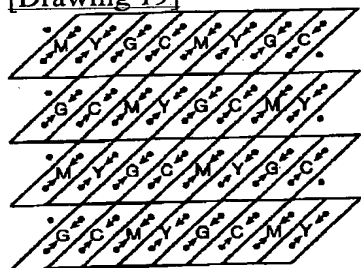 [Drawing 19]
M Y G C M Y G C
G C M Y G C M Y
M Y G C M Y G C
G C M Y G C M Y